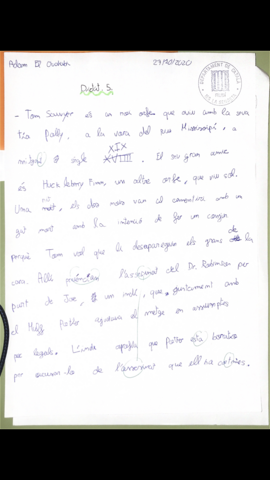 Adam El Ouahabi
29/10/2020
DEPARTAMENT DE JUSTÍCIA
Dictat 5.
- Tom Sawyer és un noi orfe que viu amb la seva
tia Polly, a la vora del riu Mississipí, a
mitjans segle XIX XVIII. El seu gran amic
és Huckleberry Finn, un altre orfe, que viu sol.
Una nit, els dos nois van al cementiri amb un
gat mort amb la intenció de fer un conjur
perquè Tom vol que li desapareguin els grans de la
cara. Allí presencien l'assassinat del Dr. Robinson per
part de Joe, un indi, que, juntament amb
el Muff Potter ajudava el metge en
poc legals. L'indi aprofita que Potter està borratxo
per acusar-lo de l'assassinat que ell ha comès.